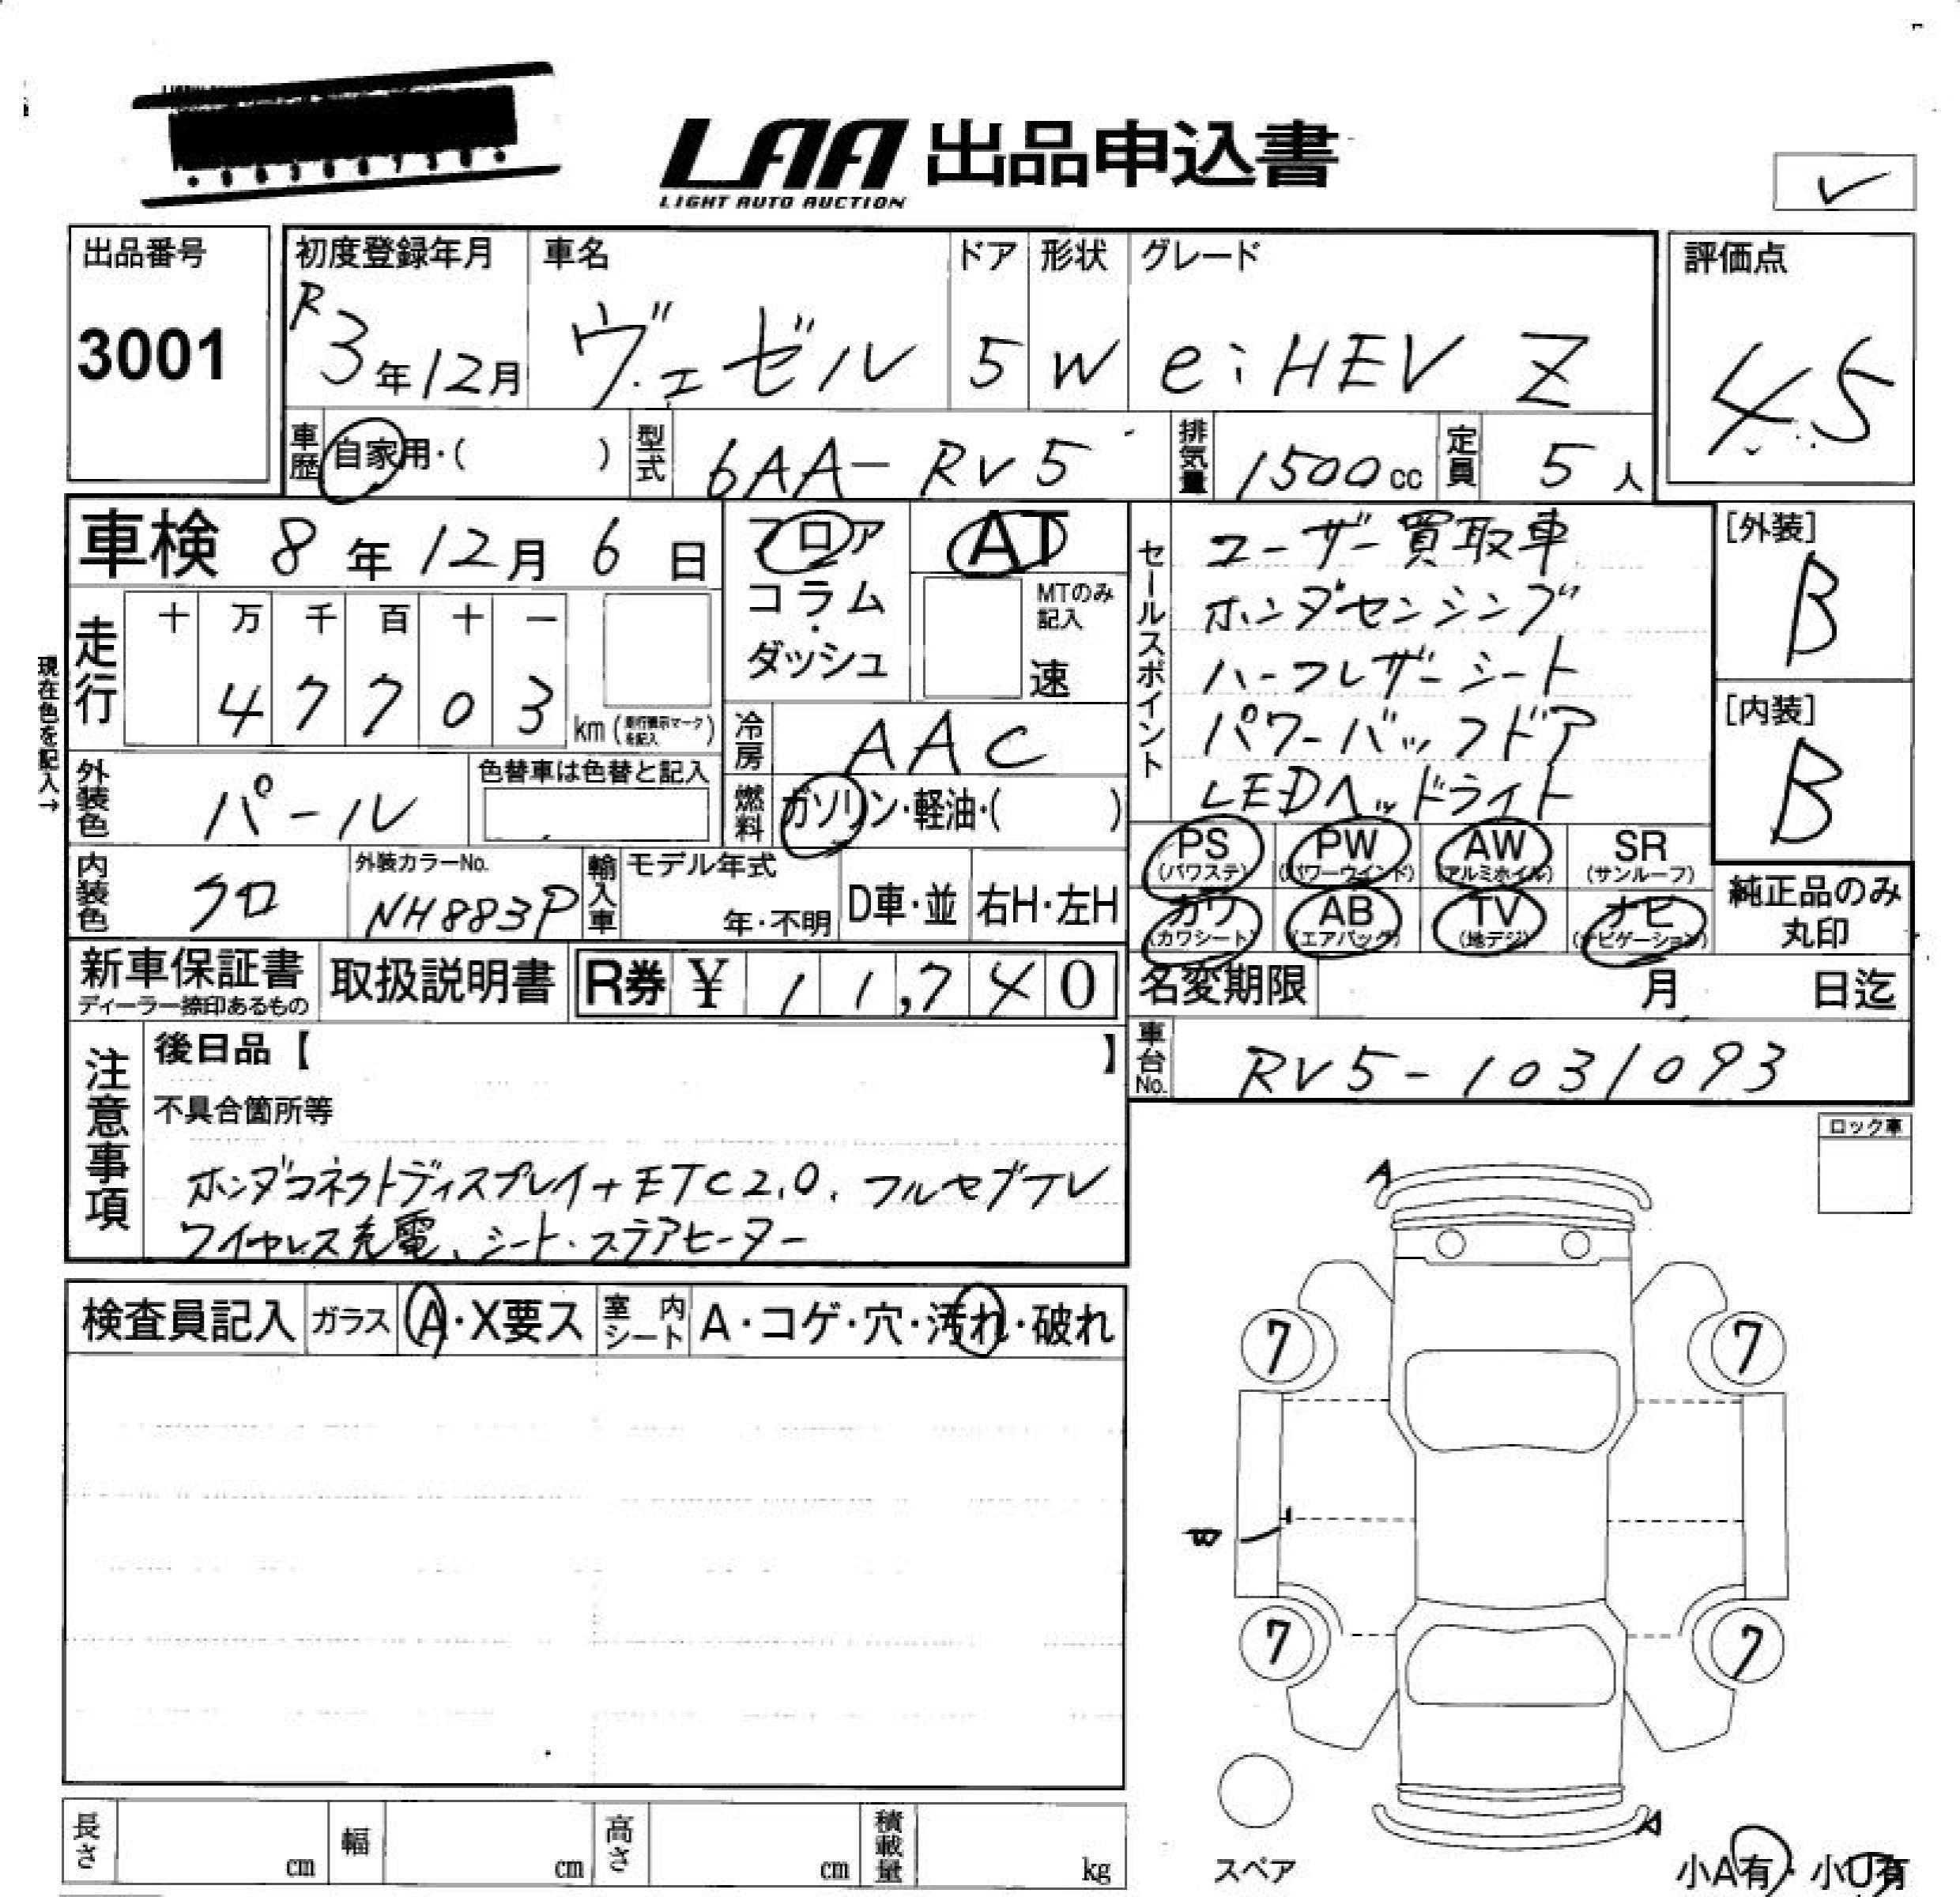 LAA 出品申込書
LIGHT AUTO AUCTION
出品番号
3001
初度登録年月
R3年12月
車名
ヴェゼル
ドア
5
形状
W
グレード
e:HEV Z
評価点
4.5
車歴
自家用・( )
型式
6AA-RV5
排気量
1500cc
定員
5人
車検 8年12月6日
フロア
コラム・
ダッシュ
AT
MTのみ
記入
速
走行
十 万 千 百 十 一
4 7 7 0 3
km(走行表示マークを記入)
現在色を記入→
外装色
パール
色替車は色替と記入
冷房
AAC
燃料
ガソリン・軽油・( )
内装色
クロ
外装カラーNo.
NH883P
輸入車
モデル年式
年・不明
D車・並
右H・左H
セールスポイント
ユーザー買取車
ホンダセンシング
ハーフレザーシート
パワーバックドア
LEDヘッドライト
[外装]
B
[内装]
B
PS
(パワステ)
PW
(パワーウインド)
AW
(アルミホイル)
SR
(サンルーフ)
カワ
(カワシート)
AB
(エアバック)
TV
(地デジ)
ナビ
(ナビゲーション)
純正品のみ
丸印
新車保証書
ディーラー捺印あるもの
取扱説明書
R券 ¥ 11,740
名変期限 月 日迄
車台No.
RV5-1031093
注意事項
後日品【 】
不具合箇所等
ホンダコネクトディスプレイ+ETC2.0、フルセグTV
ワイヤレス充電、シート・ステアヒーター
ロック車
検査員記入
ガラス
A・X要ス
室内シート
A・コゲ・穴・汚れ・破れ
A
7
7
7
7
A
スペア
小A有・小U有
長さ cm
幅 cm
高さ cm
積載量 kg